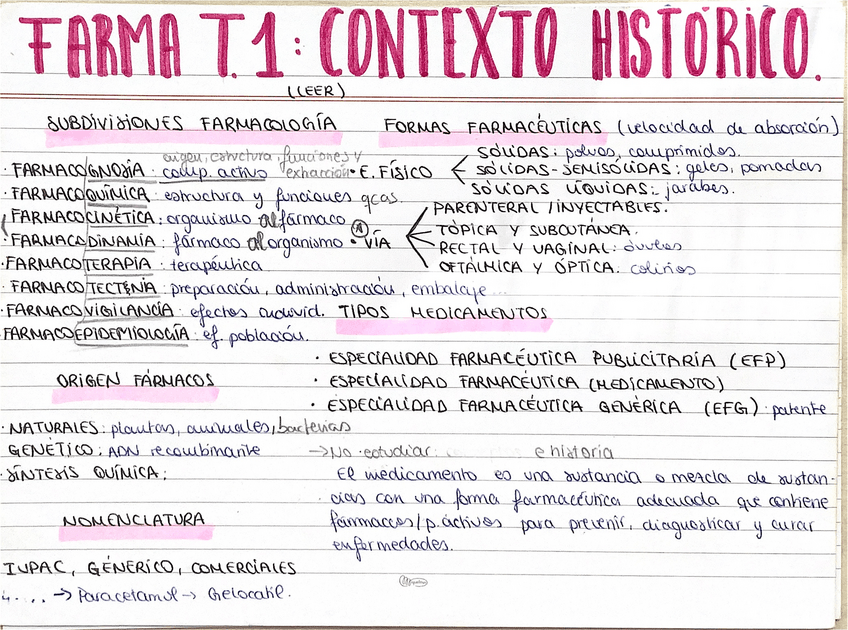 FARMA T.1: CONTEXTO HISTÓRICO.
(LEER)
SUBDIVISIONES FARMACOLOGÍA
origen, estructura, funciones y
· FARMACOGNOSIA: comp. activo extracción
· FARMACOQUÍMICA: estructura y funciones qcas.
FARMACOCINÉTICA: organismo al fármaco
· FARMACODINAMIA: fármaco al organismo
· FARMACOTERAPIA: terapéutica
· FARMACOTECTENIA: preparación, administración, embalaje...
· FARMACOVIGILANCIA: efectos individ.
FARMACOEPIDEMIOLOGÍA: ef. población.
ORIGEN FÁRMACOS
· NATURALES: plantas, animales, bacterias
GENÉTICO: ADN recombinante
· SÍNTESIS QUÍMICA:
NOMENCLATURA
IUPAC, GÉNERICO, COMERCIALES
... → Paracetamol → Gelocatil.
FORMAS FARMACÉUTICAS (velocidad de absorción)
· E. FÍSICO
SÓLIDAS: polvos, comprimidos.
SÓLIDAS-SEMISÓLIDAS: geles, pomadas
SÓLIDAS LÍQUIDAS: jarabes.
· VÍA
PARENTERAL / INYECTABLES.
TÓPICA Y SUBCUTÁNEA.
RECTAL Y VAGINAL: óvulos
OFTÁLMICA Y ÓPTICA: colirios
TIPOS MEDICAMENTOS
· ESPECIALIDAD FARMACÉUTICA PUBLICITARIA (EFP)
· ESPECIALIDAD FARMACÉUTICA (MEDICAMENTO)
· ESPECIALIDAD FARMACÉUTICA GENÉRICA (EFG): patente
→ No estudiar: e historia
El medicamento es una sustancia o mezcla de sustan-
cias con una forma farmacéutica adecuada que contiene
fármacos/p. activos para prevenir, diagnosticar y curar
enfermedades.